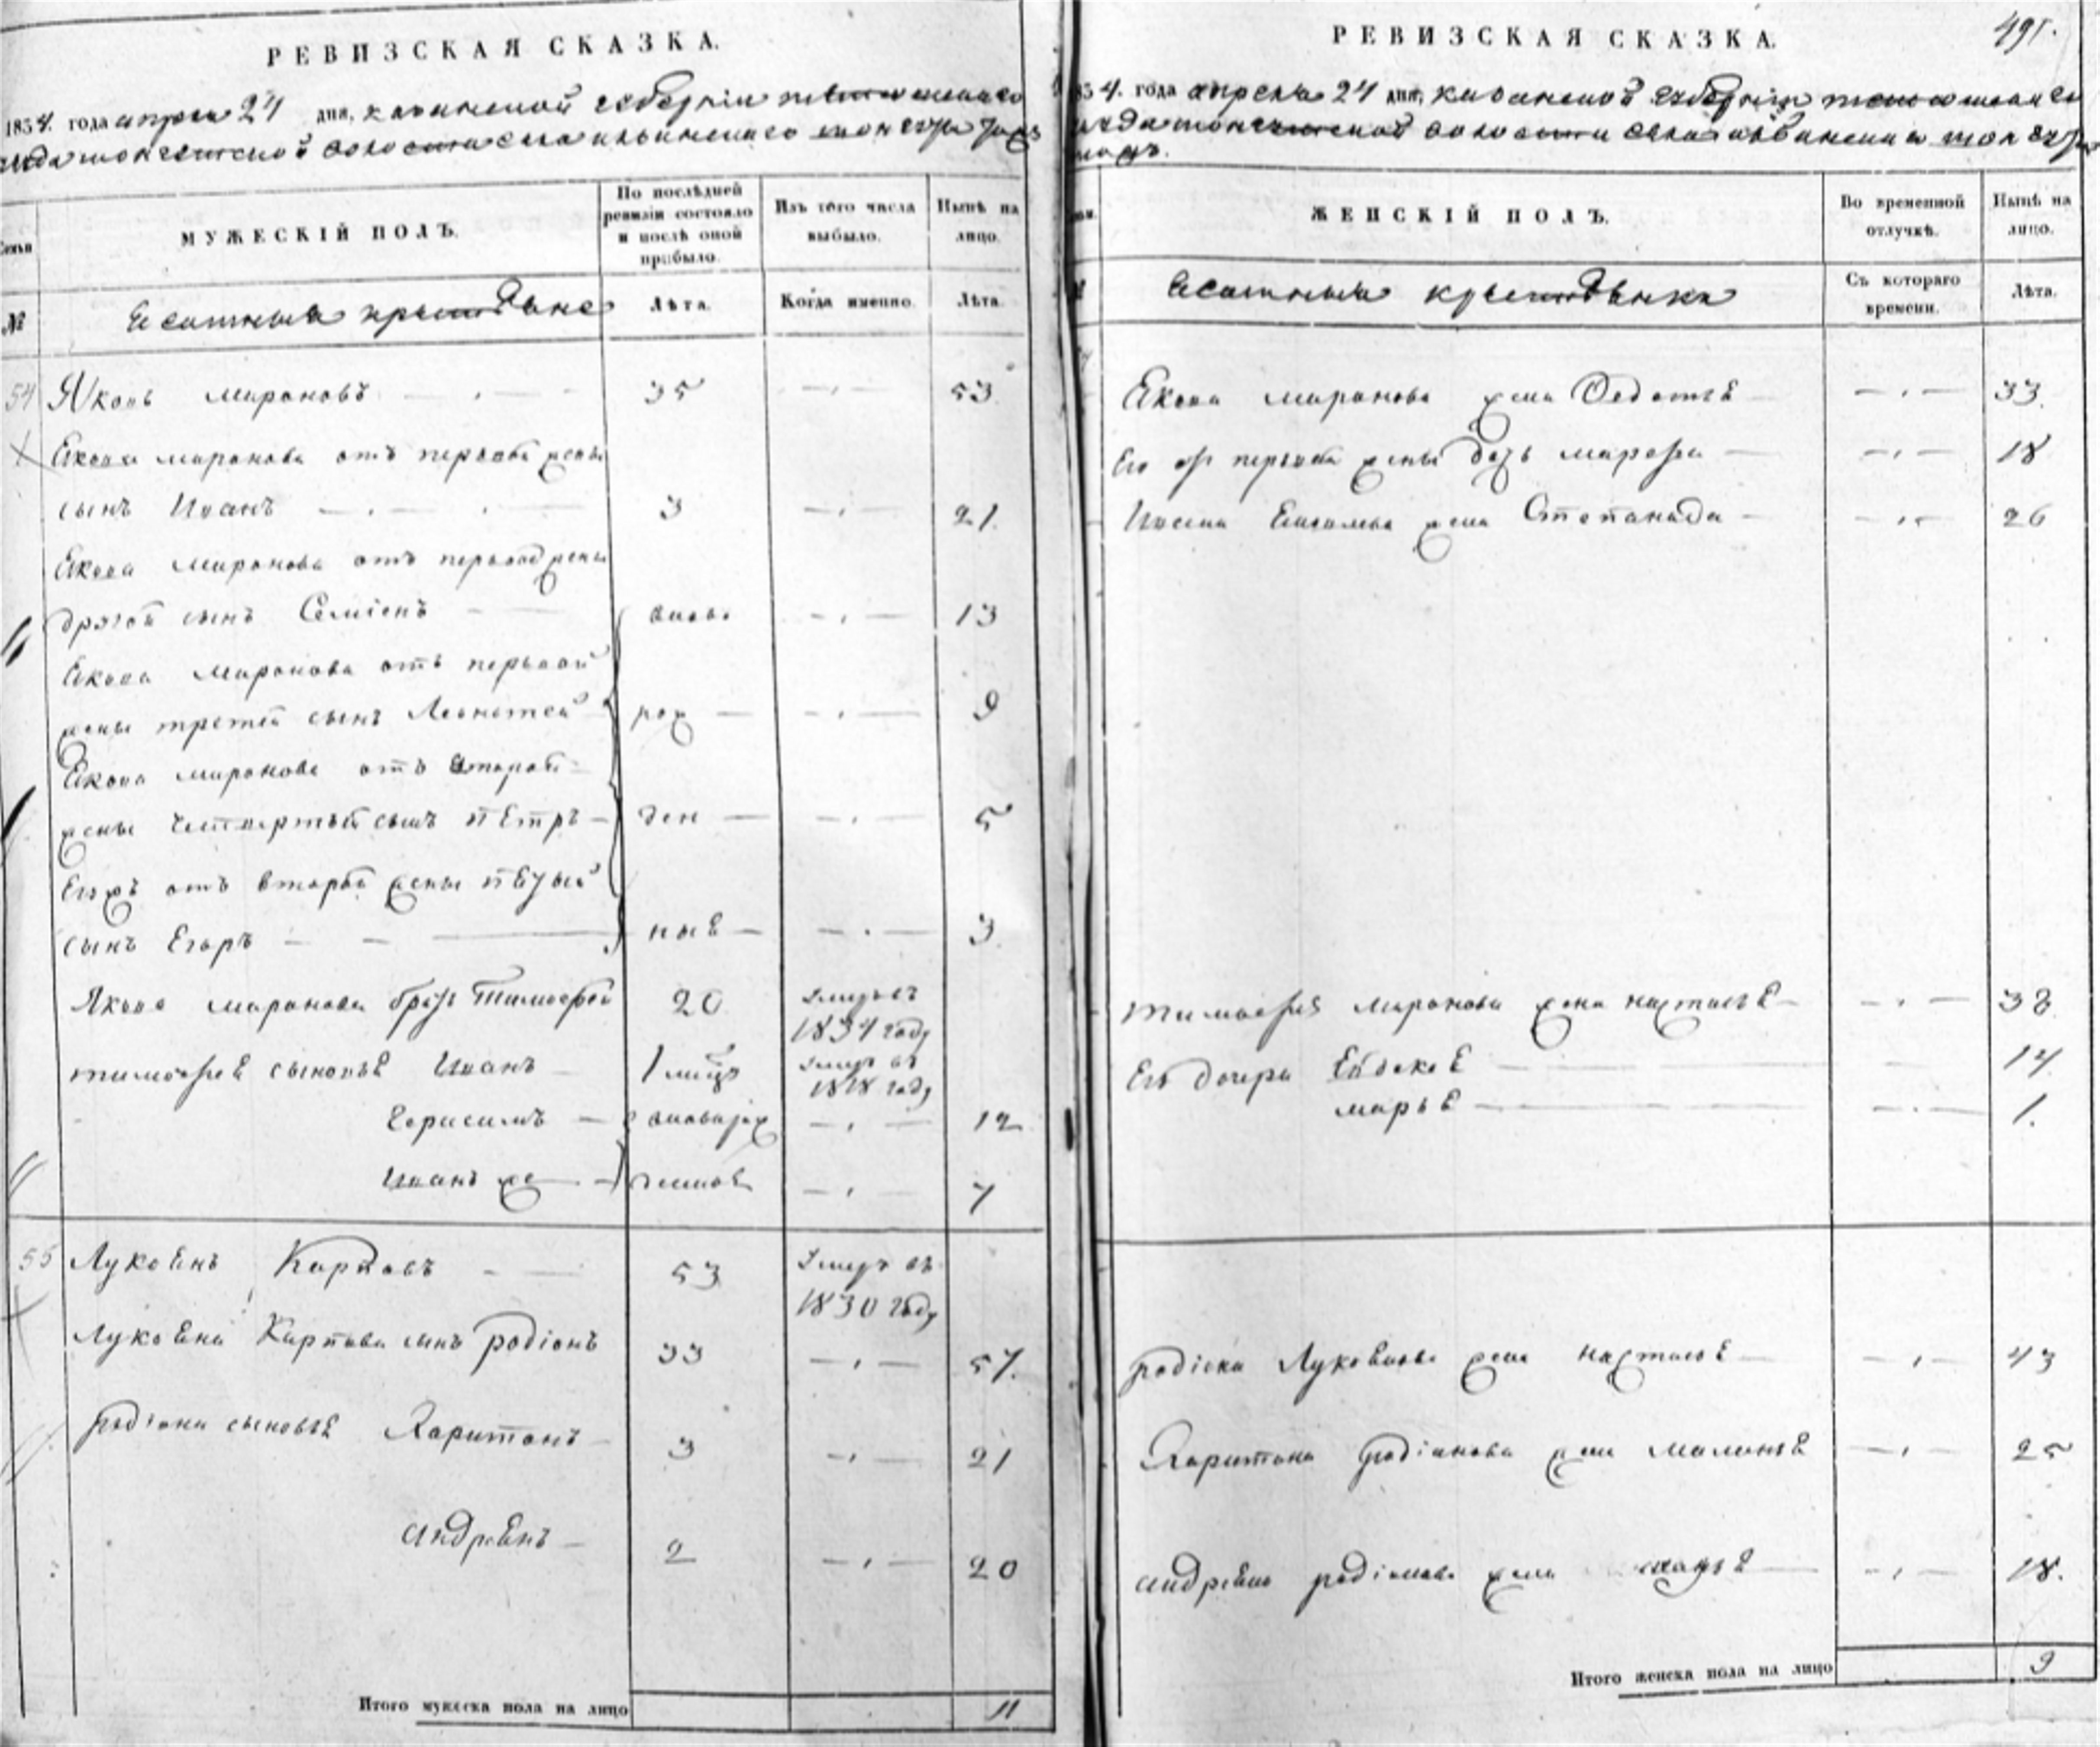 РЕВИЗСКАЯ СКАЗКА.
1834. года апреля 24 дня, казанской губерніи
волости села ильинскаго
Семьи
МУЖЕСКІЙ ПОЛЪ.
По послѣдней ревизіи состояло и послѣ оной прибыло.
Изъ того числа выбыло.
Нынѣ на лицо.
№
ясашныя крестьяне
Лѣта.
Когда именно.
Лѣта.
54 Яковъ мироновъ 35 53.
Якова миронова отъ первой жены
сынъ Иванъ 3 21.
Якова миронова отъ первой жены
другой сынъ Семіонъ вновь 13
Якова миронова отъ первой
жены третей сынъ Леонтей рож 9
Якова миронова отъ второй
жены четвертый сынъ пЕтръ ден 5
Егожъ отъ второй жены пЕтый
сынъ Егоръ ныЕ 3.
Якова миронова братъ Тимофей 20 умръ въ
1834 году
тимофеЕ сыновьЕ Иванъ 1 мцъ умръ въ
1818 году
Герасимъ 12
Иванъ же 7
55 ЛукоЕнъ Карповъ 53. умръ въ
1830 году
ЛукоЕна Карпова сынъ родіонъ 33 57.
родіона сыновьЕ Харитонъ 3 21
андреЕнъ 2 20
Итого мужеска пола на лицо 11
РЕВИЗСКАЯ СКАЗКА. 491.
1834. года апреля 24 дня, казанской губерніи
волости села
ЖЕНСКІЙ ПОЛЪ.
Во временной отлучкѣ.
Нынѣ на лицо.
№
ясашныя крестьянки
Съ котораго времени.
Лѣта.
Якова миронова жена ФедотьЕ 33.
Его от первой жены дочь марфа 18
Ивана Яковлева жена Степанида 26
тимофея миронова жена настасьЕ 38.
Его дочери ЕвдокеЕ 14.
марьЕ 1.
родіона ЛукоЕнова жена настасьЕ 43
Харитона родіонова жена маланьЕ 25
андреЕна родіонова жена 18.
Итого женска пола на лицо 9